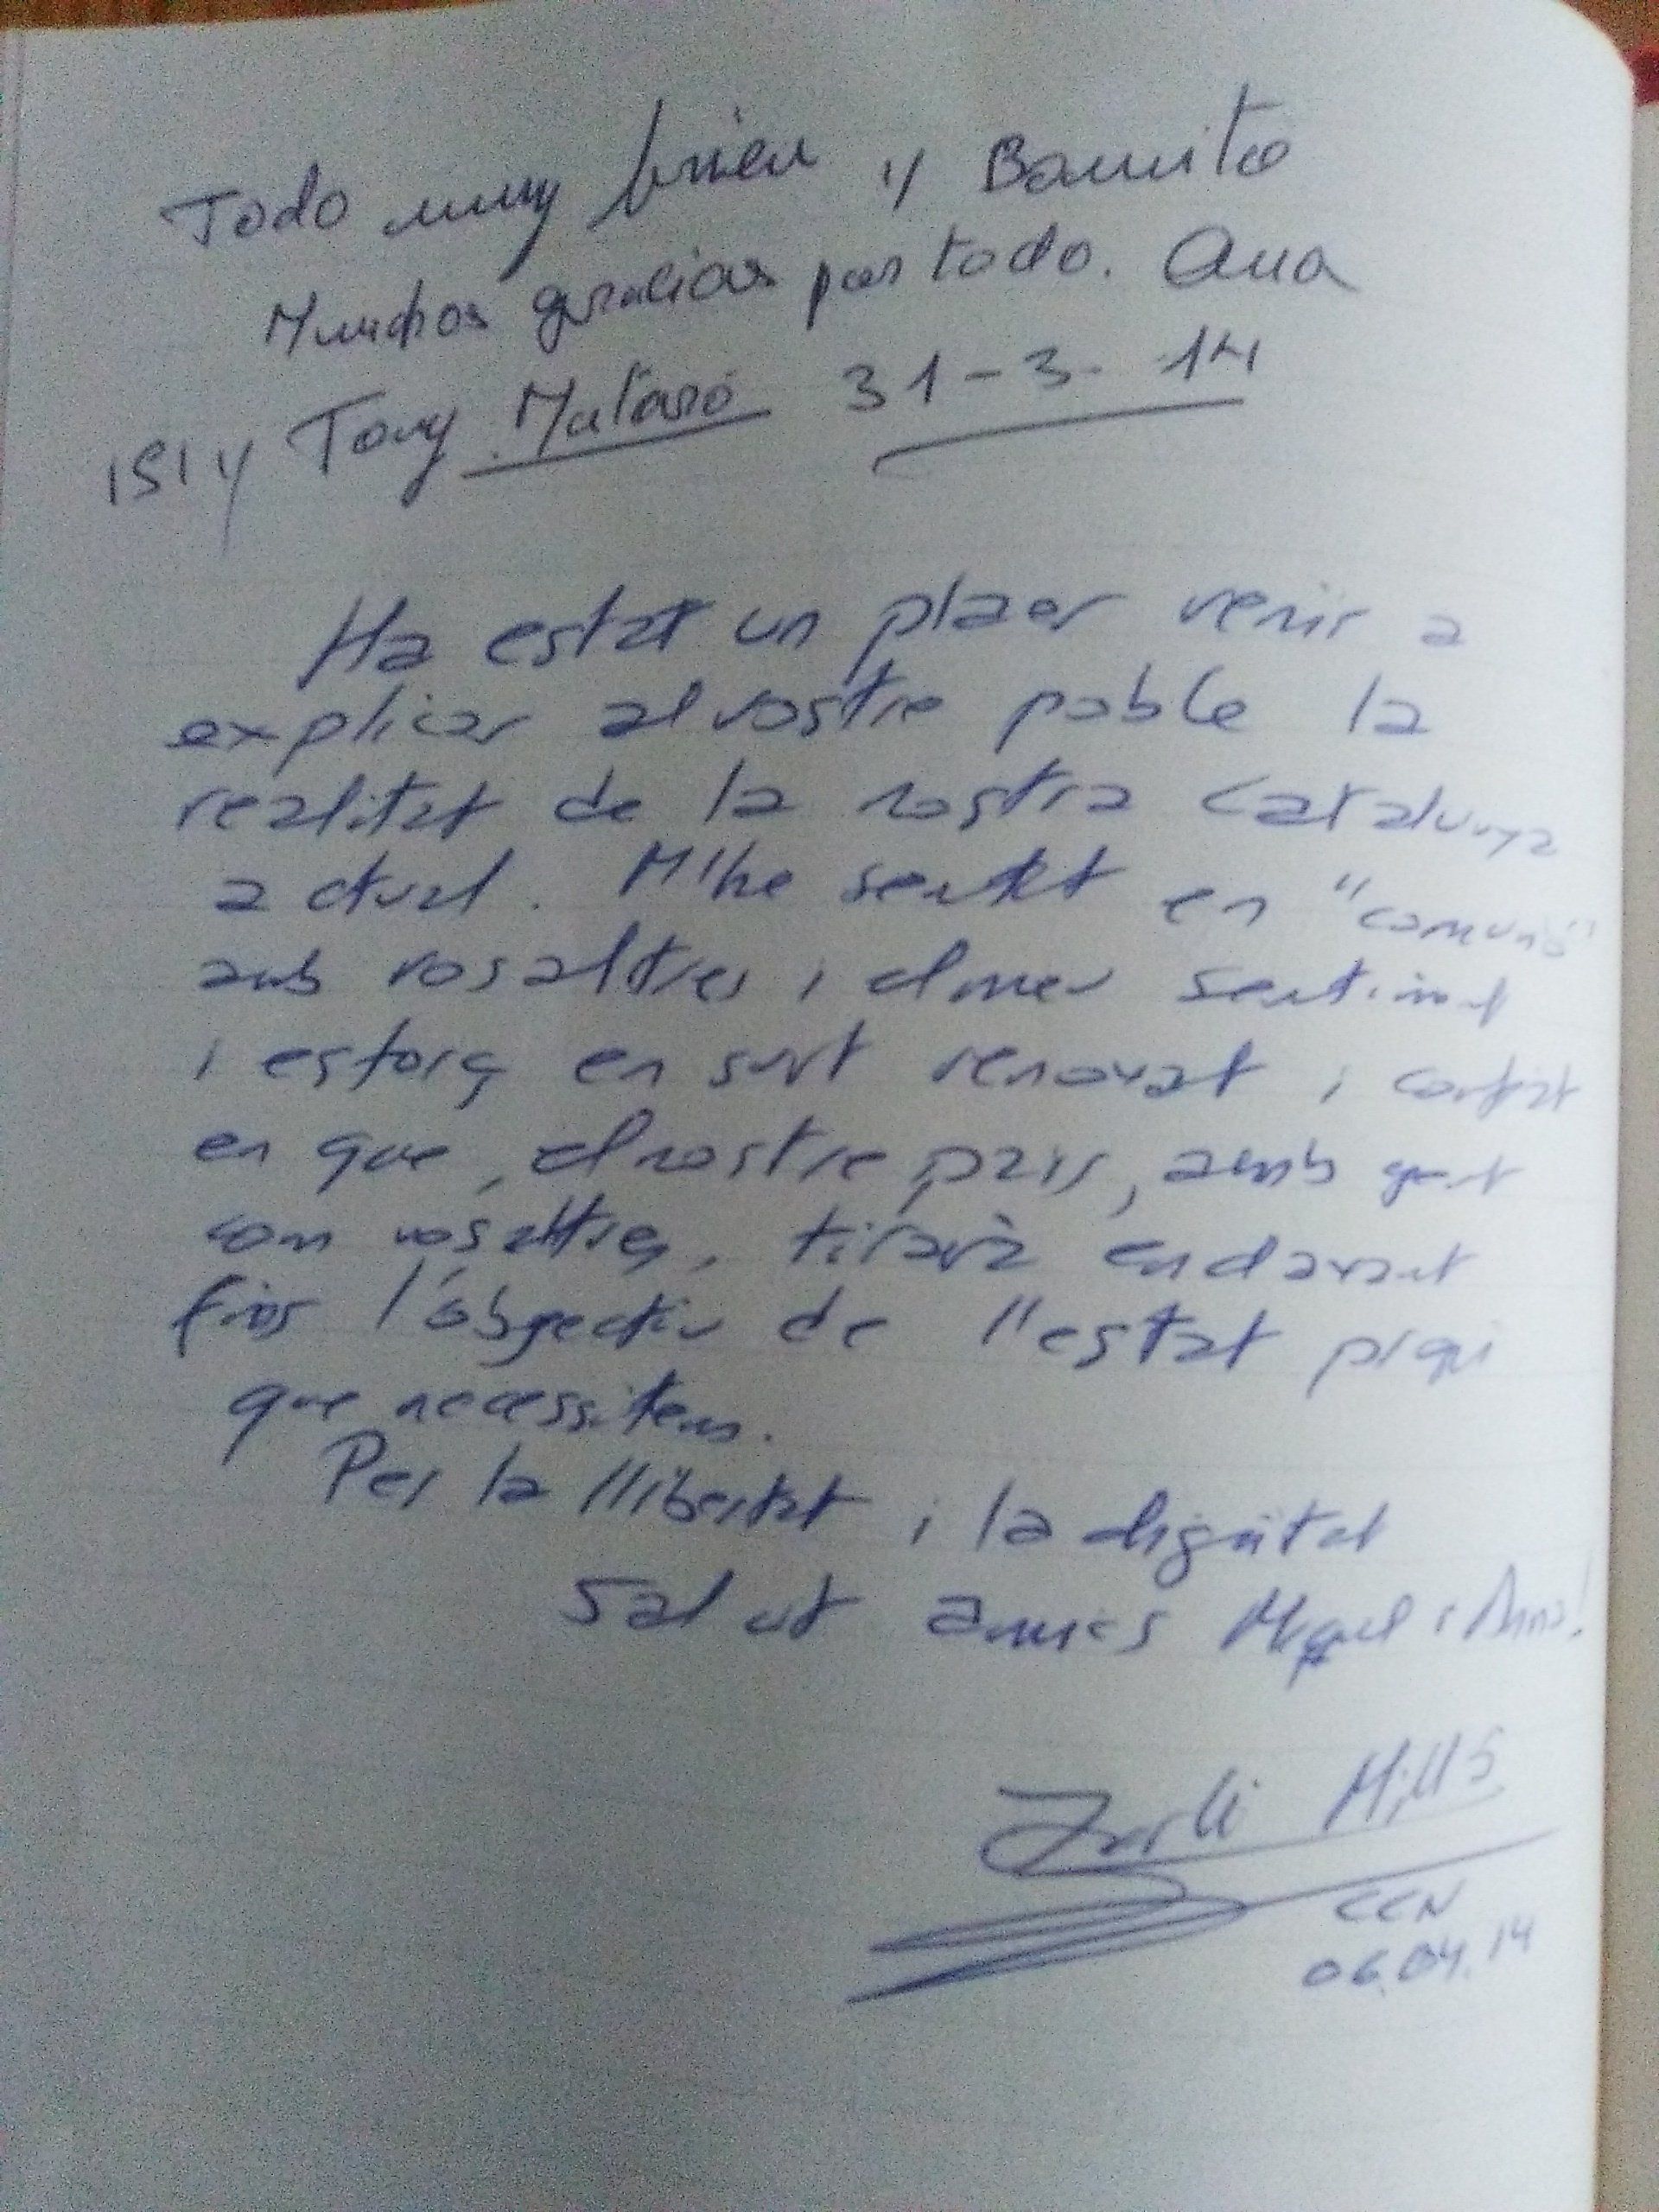 Todo muy bien y Bonito
Muchas gracias por todo. Ana
ISI y Tony Mataró 31-3-14
Ha estat un plaer venir a
explicar al vostre poble la
realitat de la nostra Catalunya
actual. M'he sentit en "comunió"
amb vosaltres i el meu sentiment
i esforç en surt renovat i confiat
en que, el nostre país, amb gent
com vosaltres, tirarà endavant
fins l'objectiu de l'estat propi
que necessitem.
Per la llibertat i la dignitat
Salut amics Miquel i Anna!
MillS
CCN
06.04.14